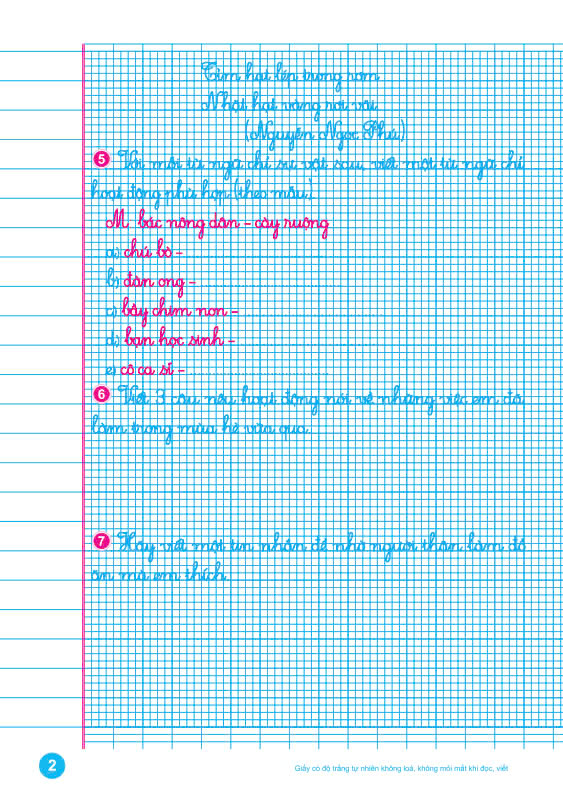 Tìm hạt lép trong rơm
Nhặt hạt vàng rơi vãi
(Nguyễn Ngọc Phú)
5 Với mỗi từ ngữ chỉ sự vật sau, viết một từ ngữ chỉ
hoạt động phù hợp (theo mẫu).
M bác nông dân – cày ruộng
a) chú bò –
b) đàn ong – ..............................
c) bầy chim non –
d) bạn học sinh –
e) cô ca sĩ – ..............................
6 Viết 3 câu nêu hoạt động nói về những việc em đã
làm trong mùa hè vừa qua.
7 Hãy viết một tin nhắn để nhờ người thân làm đồ
ăn mà em thích.
2
Giấy có độ trắng tự nhiên không loá, không mỏi mắt khi đọc, viết